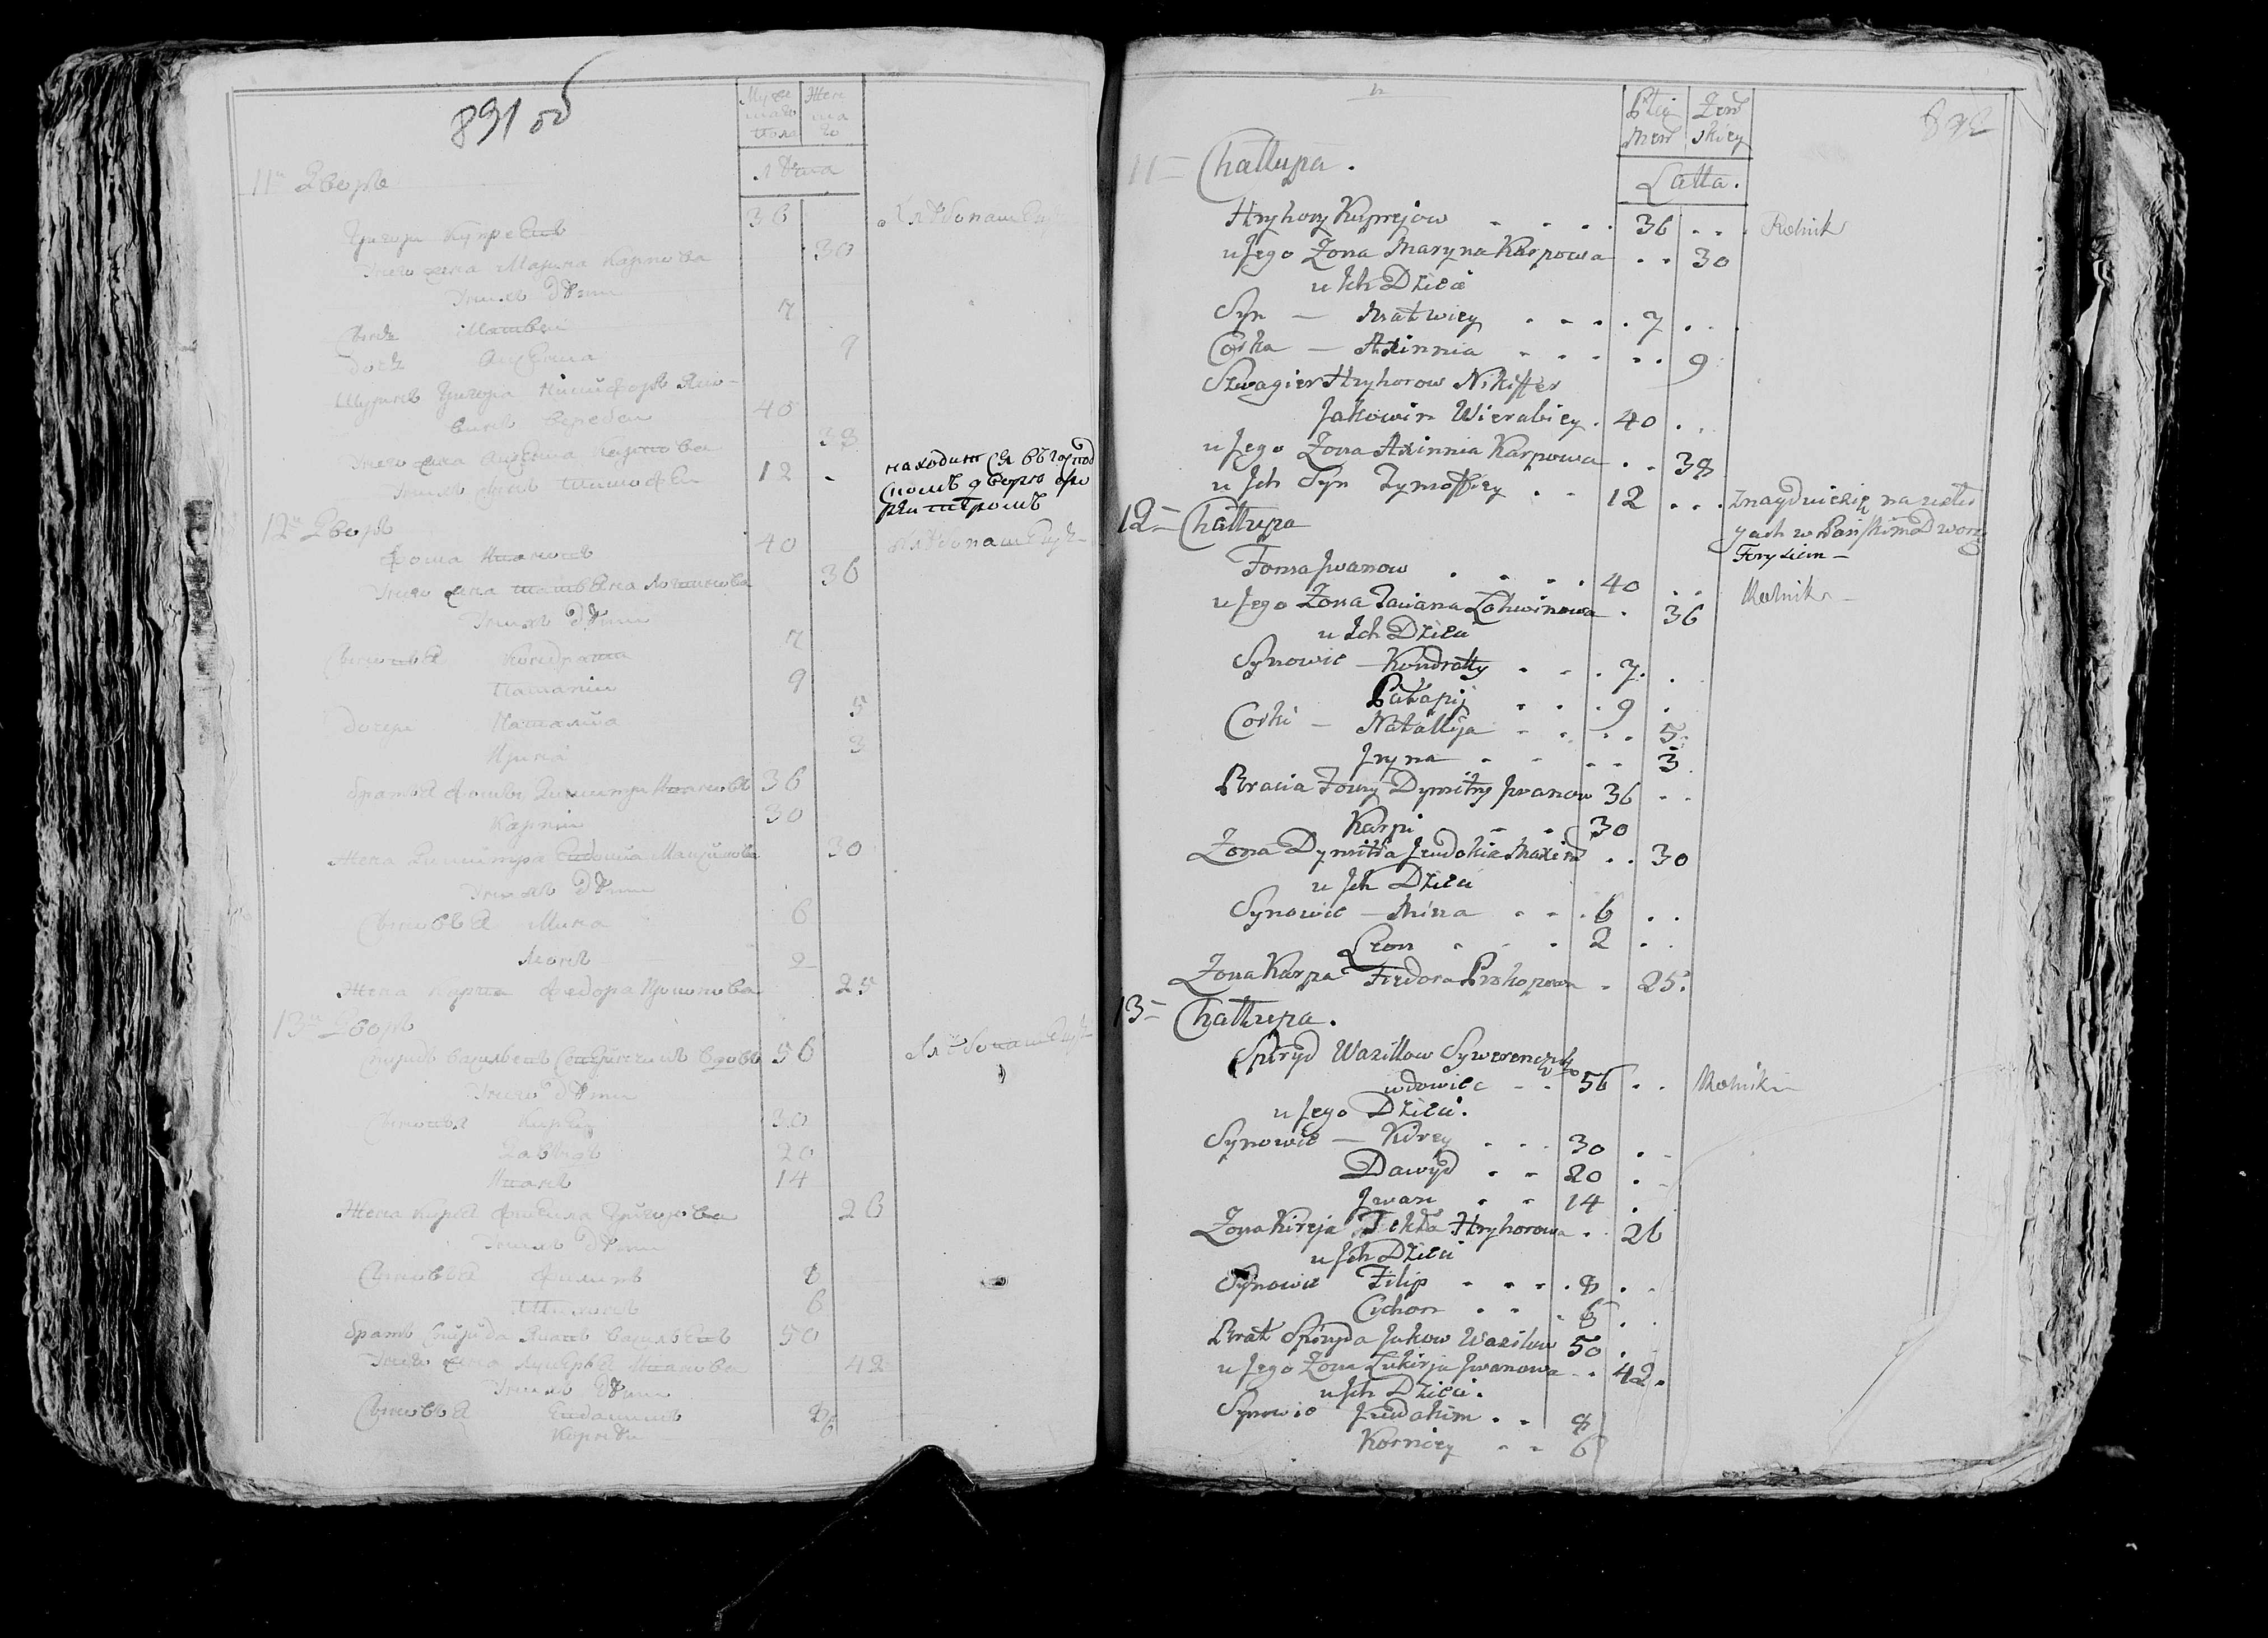 891 об
Муже
скаго
пола
Жен
ска
го
Лѣта
11й Дворъ
Григори Купреевъ 36 Хлѣбопашецъ
Унего жена Марина Карпова 30
Унихъ дѣти
Сынъ Матвеи 7
Дочь 9
Шуринъ Григора Никифоръ Яко-
винъ Веребеи 40
Унего жена Карпова 38
Унихъ сынъ Тимофеи 12 находится въ господ
скомъ дворе фо
реитеромъ
12й Дворъ
Фома Ивановъ 40 Хлѣбопашецъ
Унего жена Татьяна Логвинова 36
Унихъ дѣти
Сыновья Кондрата 7
Патапии 9
Дочери Наталия 5
Ирина 3
Братья Фомы Димитри Ивановъ 36
Карпии 30
Жена Димитра Евдокия Максимова 30
Унихъ дѣти
Сыновья Мина 6
Леонъ 2
Жена Карпа Федора Прокопова 25
13й Дворъ
Спиридъ Васильевъ вдовъ 56 Хлѣбопашецъ
Унего дѣти
Сыновья Киреи 30
Давидъ 20
Иванъ 14
Жена Кирея Фекла Григорова 26
Унихъ дѣти
Сыновья Филипъ 8
Тихонъ 6
Братъ Спирида Яковъ Васильевъ 50
Унего жена Лукерья Иванова 42
Унихъ дѣти
Сыновья Евдакимъ 8
Корнѣи 6
892
Płci
Męw
Żeń
skiey
Latta.
11 Chattupa.
Hryhory Kuprejow 36 Rolnik
u Jego Żona Maryna Karpowa 30
u Ich Dzieci
Syn — Matwiey 7
Corka — Axinnia 9
Szwagier Hryhorow Nikiffer
Jakowin Wierabiey 40
u Jego Żona Axinnia Karpowa 38
u Ich Syn Tymoffiey 12 Znayduie się na
w Pańskim Dworze
Forysiem
12 Chattupa
Foma Jwanow 40 Rolnik
u Jego Żona Taciana Łohwinowa 36
u Ich Dzieci
Synowie — Kondratty 7
Patapij 9
Corki — Natallija 5
Jryna 3
Bracia Fomy Dymitry Jwanow 36
Karpi 30
Żona Dymitra Jewdokia Maxim 30
u Ich Dzieci
Synowie — Mina 6
Leon 2
Żona Karpa Fiedora Prokopowa 25
13 Chattupa.
Spiryd Wazillow
wdowiec 56 Rolnik
u Jego Dzieci.
Synowie — Kirey 30
Dawyd 20
Jwan 14
Żona Kireja Tekla Hryhorowa 26
u Ich Dzieci
Synowie Filip 8
Cichon 6
Brat Spiryda Jakow Wazilow 50
u Jego Żona Łukirja Jwanowa 42
u Ich Dzieci.
Synowie Jewdakim 8
Korniey 6